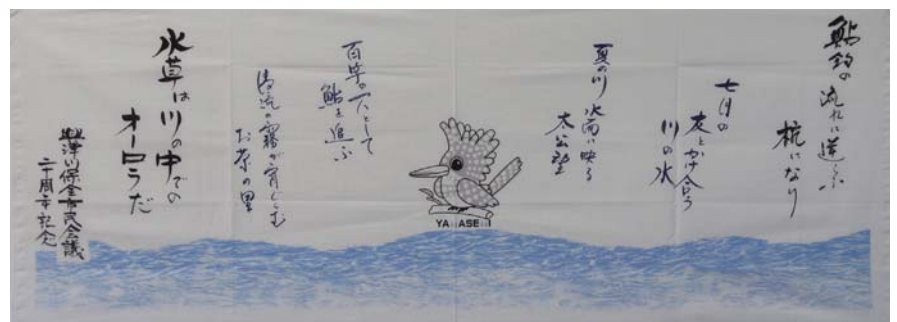 鮎釣の流れに逆らふ
杭になり
七月の
友とかけ合う
川の水
夏の川 水面に映る
太公望
百竿の一人として
鮎を追ふ
清流の霧が育くむ
お茶の里
水草は川の中での
オーロラだ
川保全市民会議
二十周年記念
YAMASEMI